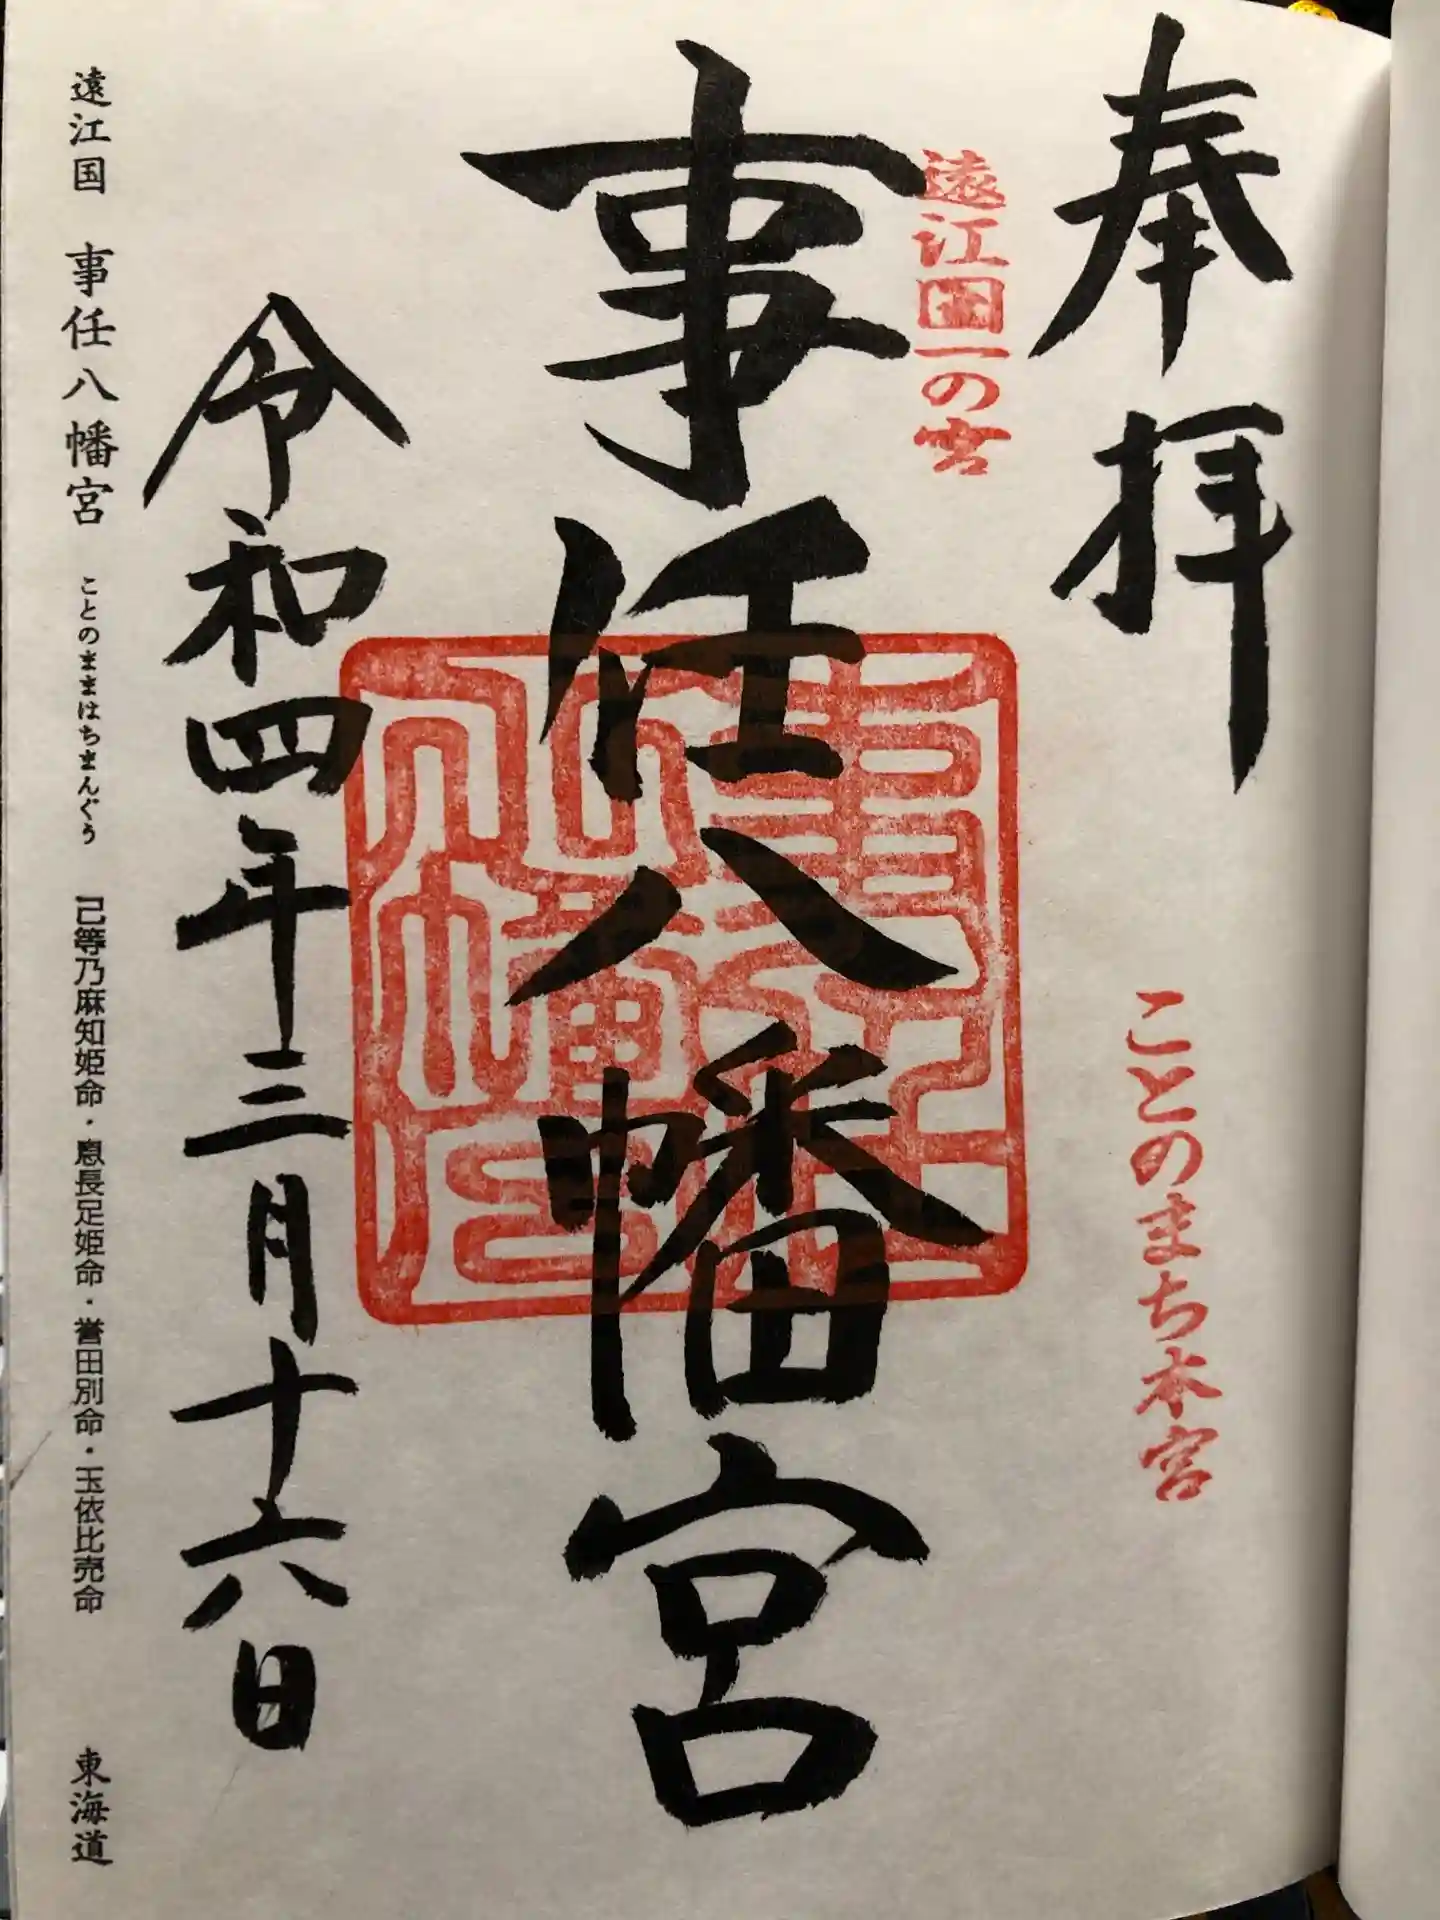 奉拝
ことのまち本宮
遠江国一の宮
事任八幡宮
令和四年三月十六日
遠江国 事任八幡宮 ことのままはちまんぐう 己等乃麻知姫命・息長足姫命・誉田別命・玉依比売命 東海道